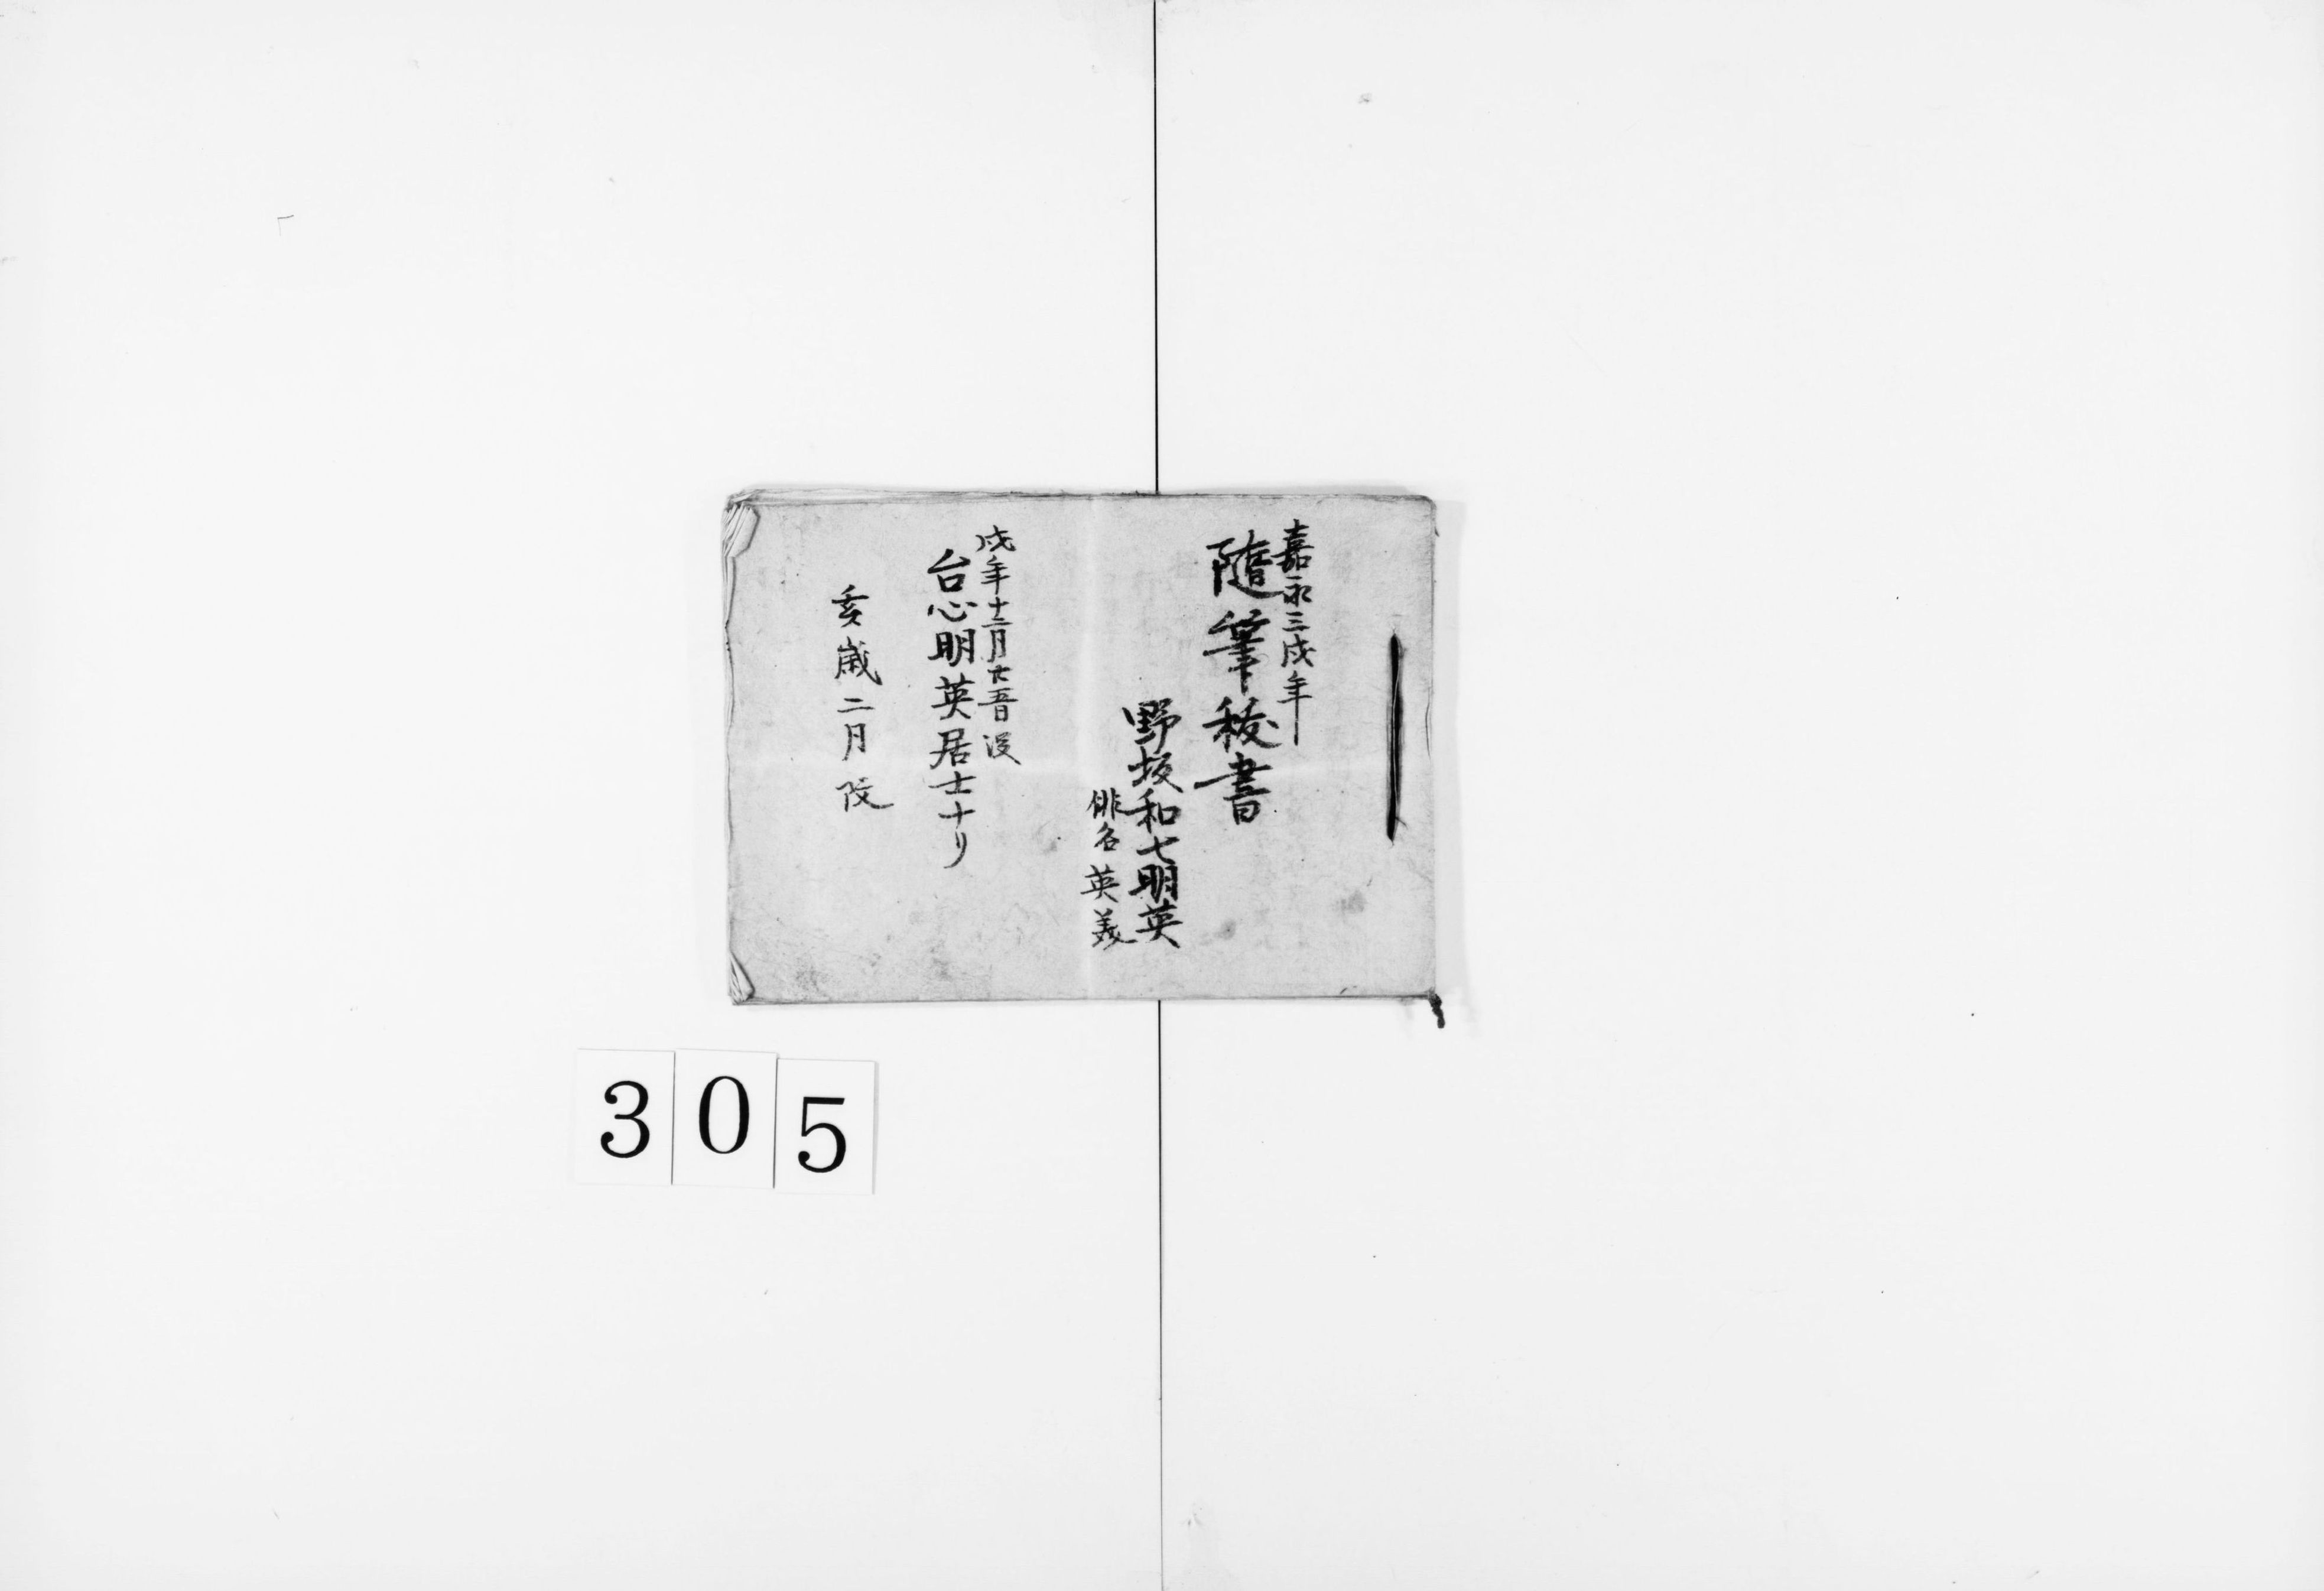 嘉永三戌年
随筆秘書
野坂和七明英
俳名英義
戌年十二月廿五日没
台心明英居士ナリ
亥歳二月
305